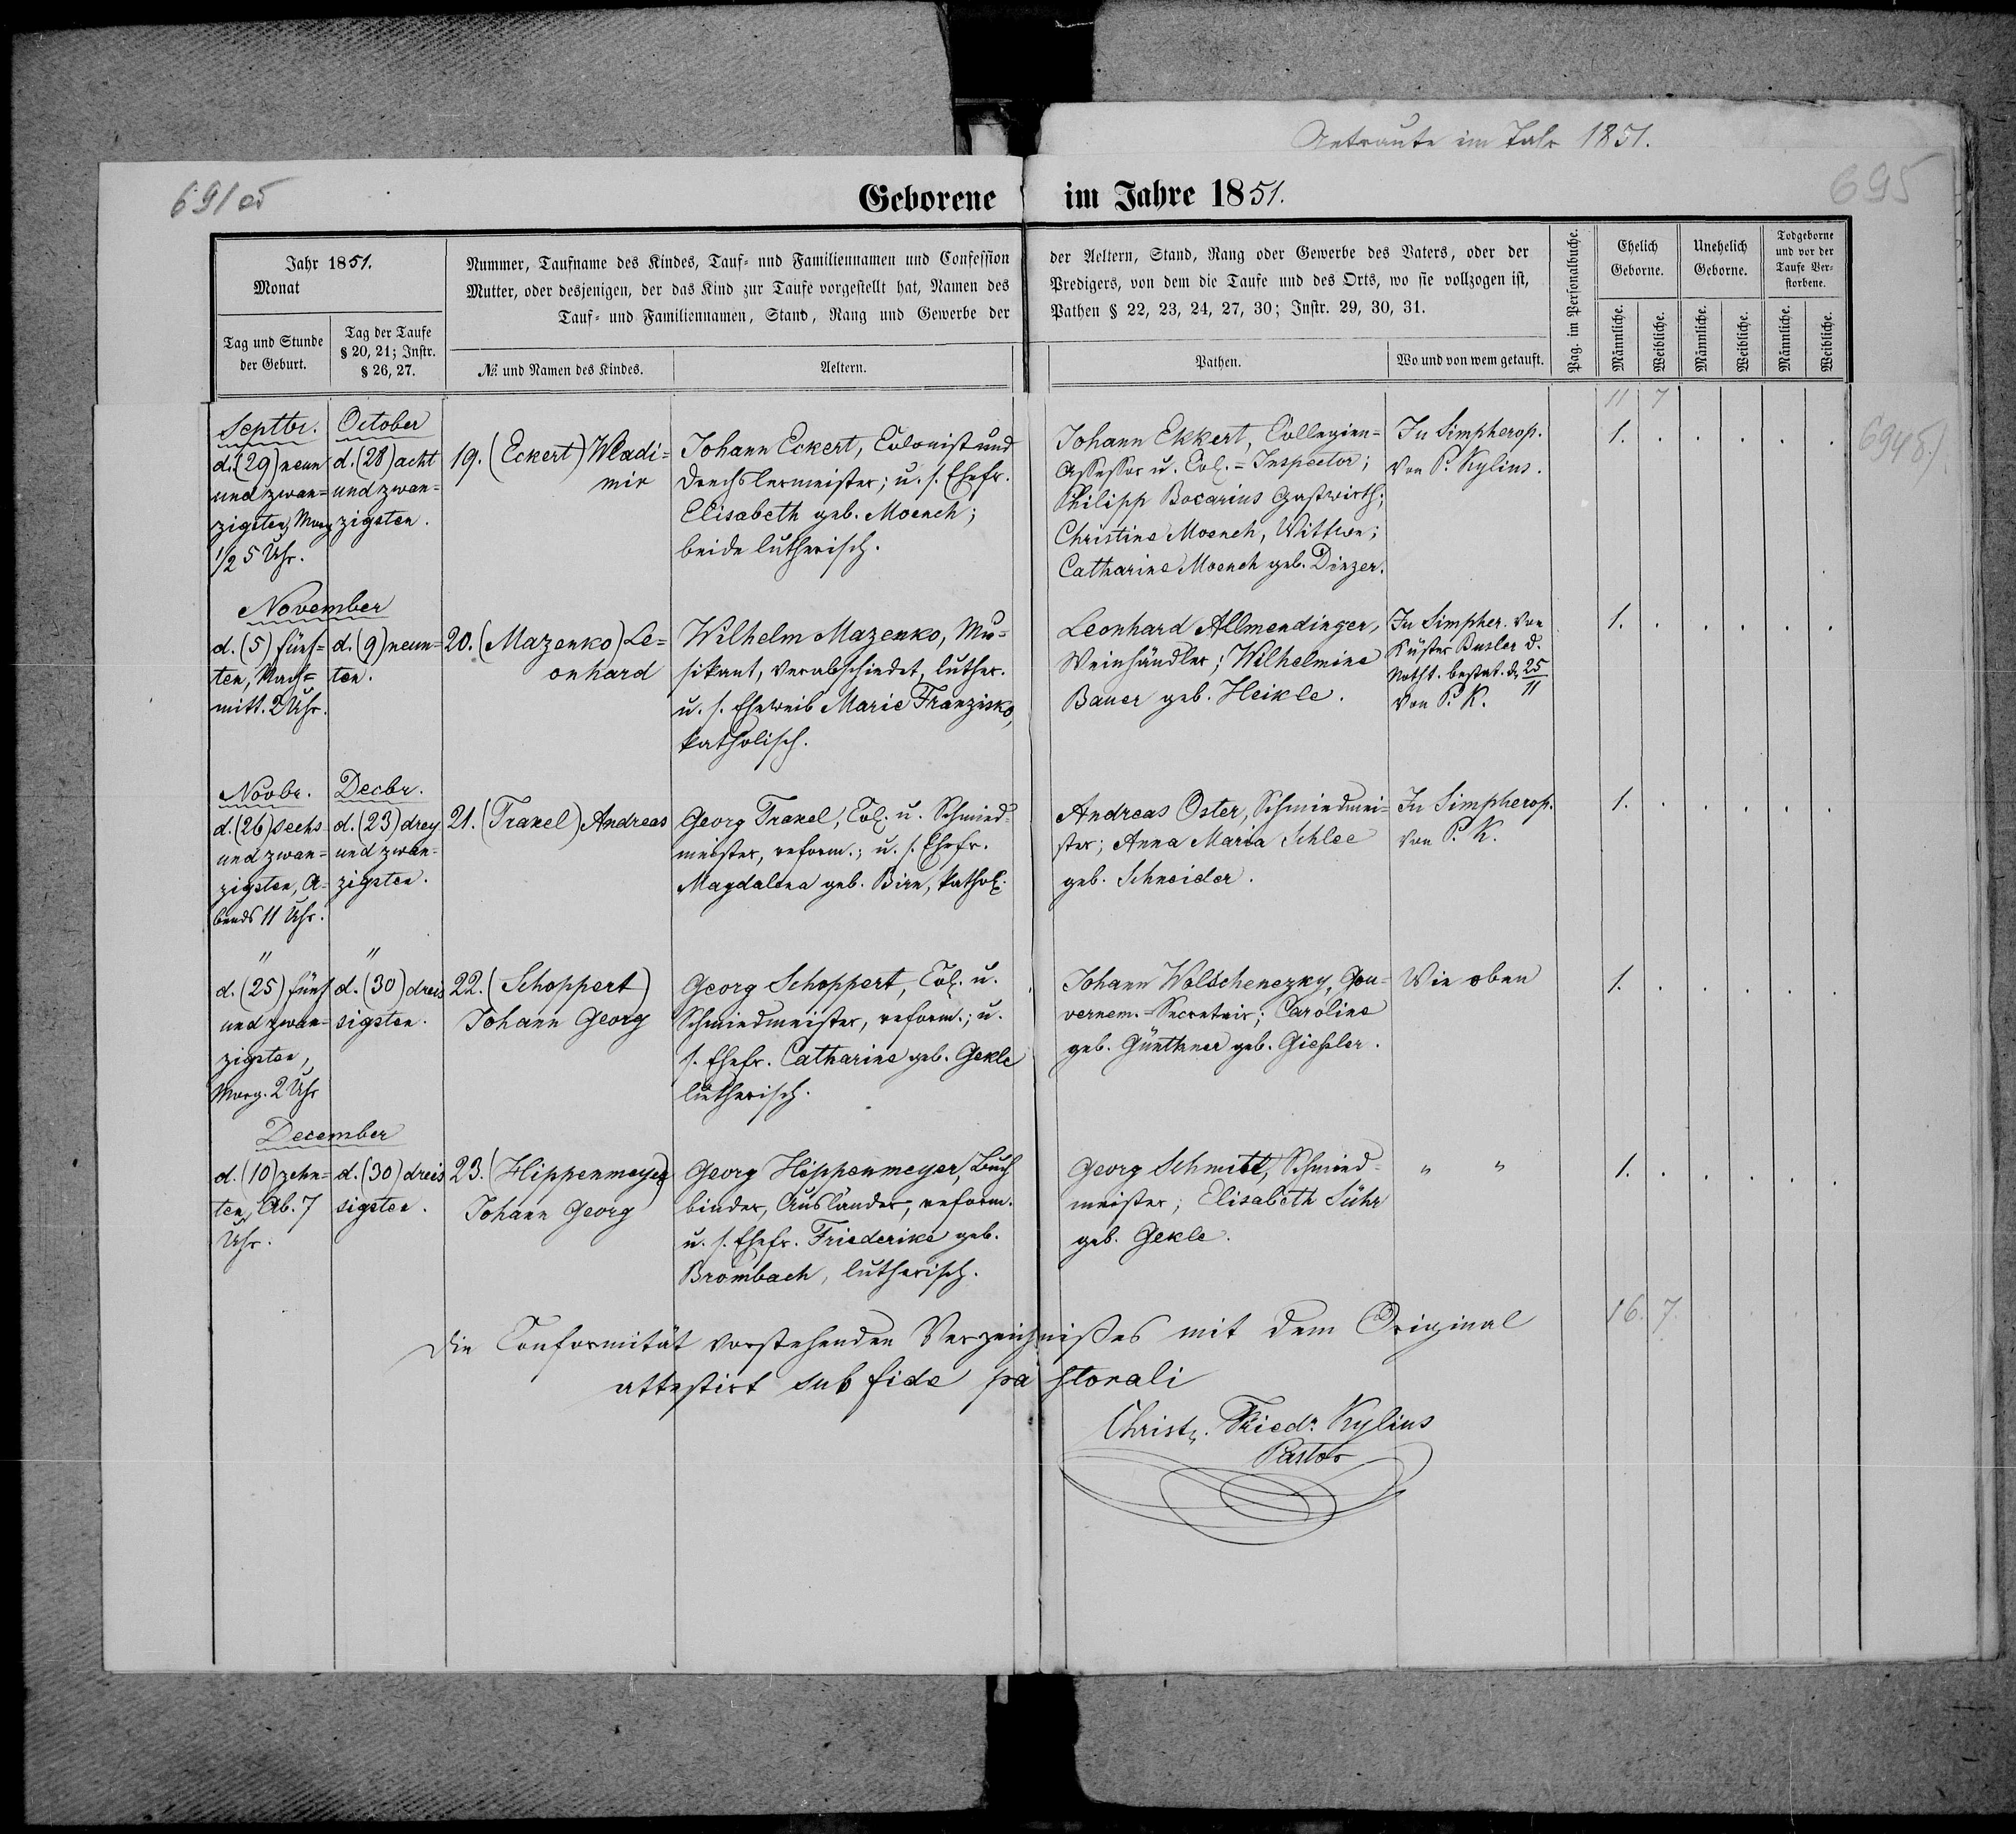 Getraute im Jahr 1851.
695
Geborene im Jahre 1851.
Jahr 1851.
Monat
Tag und Stunde der Geburt.
Tag der Taufe § 20, 21; Instr. § 26, 27.
Nummer, Taufname des Kindes, Tauf- und Familiennamen und Confession der Aeltern, Stand, Rang oder Gewerbe des Vaters, oder der
Mutter, oder desjenigen, der das Kind zur Taufe vorgestellt hat, Namen des Predigers, von dem die Taufe und des Orts, wo sie vollzogen ist,
Tauf- und Familiennamen, Stand, Rang und Gewerbe der Pathen § 22, 23, 24, 27, 30; Instr. 29, 30, 31.
№ und Namen des Kindes.
Aeltern.
Pathen.
Wo und von wem getauft.
Pag. im Personalbuche.
Ehelich Geborne.
Unehelich Geborne.
Todgeborne und vor der Taufe Verstorbene.
Männliche. Weibliche. Männliche. Weibliche. Männliche. Weibliche.
11 7
Septbr.
d. (29) neun
und zwan=
zigsten, Morg
1/2 5 Uhr.
October
d. (28) acht
und zwan=
zigsten.
19. (Eckert) Wladi=
mir
Johann Eckert, Colonist und
Drechslermeister; u. s. Ehefr.
Elisabeth geb. Moench;
beide lutherisch.
Johann Ekkert, Collegien=
Assessor u. Col.=Inspector;
Philipp Bocarius Gastwirth;
Christine Moench, Wittwe;
Catharine Moench geb. Dinzer.
In Simpherop.
von P. Kylius.
1.
694
November
d. (5) fünf=
ten, Nach=
mitt. 2 Uhr.
d. (9) neun=
ten.
20. (Mazenko) Le=
onhard
Wilhelm Mazenko, Mu=
sikant, verabschiedet, luther.
u. s. Eheweib Marie Franzisko,
katholisch.
Leonhard Allmendinger,
Weinhändler; Wilhelmine
Bauer geb. Heikle.
In Simpher. von
Küster Busler d.
Notht. bestat. d. 25/11
von P. K.
1.
Novbr.
d. (26) sechs
und zwan=
zigsten, A=
bends 11 Uhr.
Decbr.
d. (23) drey
und zwan=
zigsten.
21. (Trakel) Andreas
Georg Trakel, Col. u. Schmied=
meister, reform.; u. s. Ehefr.
Magdalena geb. Birn, kathol.
Andreas Oster, Schmiedmei=
ster; Anna Maria Schlee
geb. Schneider.
In Simpherop.
von P. K.
1.
" "
d. (25) fünf
und zwan=
zigsten,
Morg. 2 Uhr
d. (30) dreis
sigsten.
22. (Schoppert)
Johann Georg
Georg Schoppert, Col. u.
Schmiedmeister, reform.; u.
s. Ehefr. Catharine geb. Gekle
lutherisch.
Johann Wolschenezky, Gou=
vernem.=Secretair; Caroline
geb. Günthner geb. Giessler.
Wie oben
1.
December
d. (10) zehn=
ten, Ab. 7
Uhr.
d. (30) dreis
sigsten.
23. (Hippenmeyer)
Johann Georg
Georg Hippenmeyer, Buch
binder, Ausländer, reform.
u. s. Ehefr. Friederike geb.
Brombach, lutherisch.
Georg Schmitt, Schmied=
meister; Elisabeth Sühr
geb. Gekle.
" "
1.
16. 7.
Die Conformität vorstehenden Verzeichnißes mit dem Original
attestirt sub fide pastorali
Christ. Friedr. Kylius
Pastor